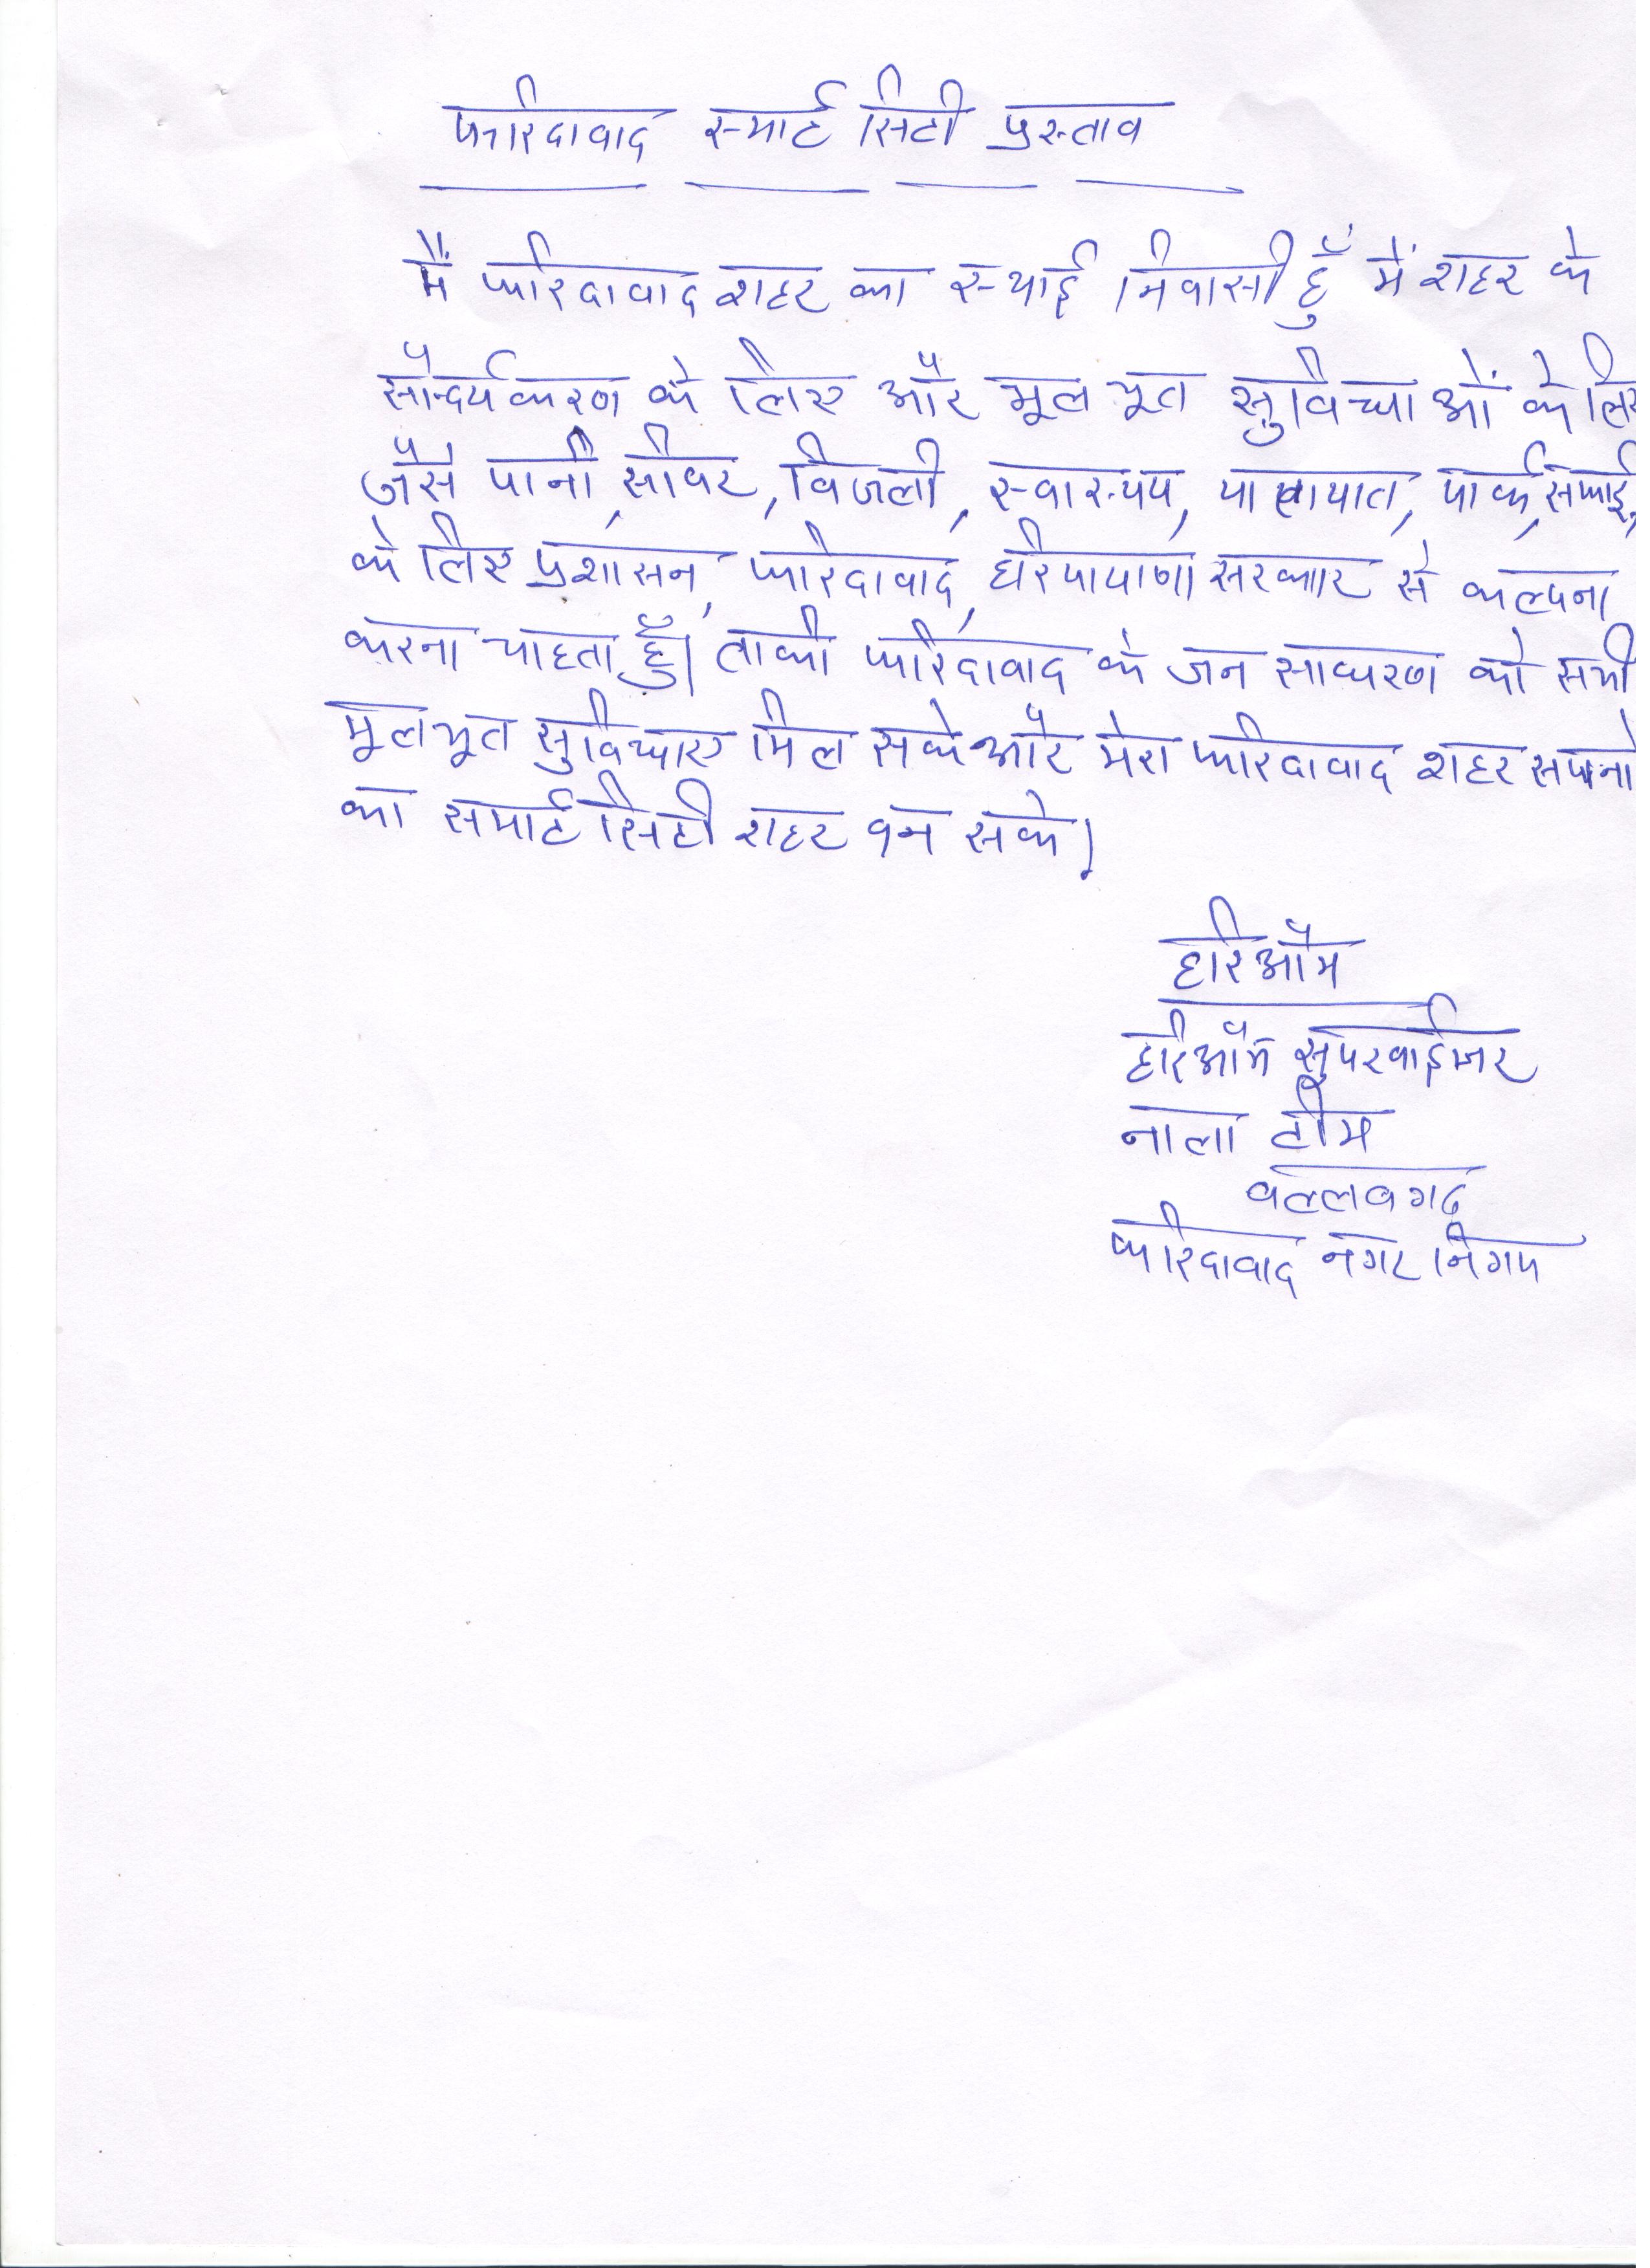 फरिदावाद स्मार्ट सिटी प्रस्ताव
मैं फरिदावाद शहर का स्थाई निवासी हूँ मैं शहर के
सौन्दर्यकरण के लिए और मूल भूत सुविधाओं के लिए
जैसे पानी, सीवर, विजली, स्वास्थय, यातायात, पार्क, सफाई,
के लिए प्रशासन, फरिदावाद, सरकार से कल्पना
करना चाहता हूँ। ताकी फरिदावाद के जन साधरण को सभी
मूलभूत सुविधाए मिल सके और मेरा फरिदावाद शहर सपनो
का समार्ट सिटी शहर वन सके।
हरिओम
हरिओम सुपरवाईजर
नाला टीम
वल्लवगढ
फरिदावाद नगर निगम